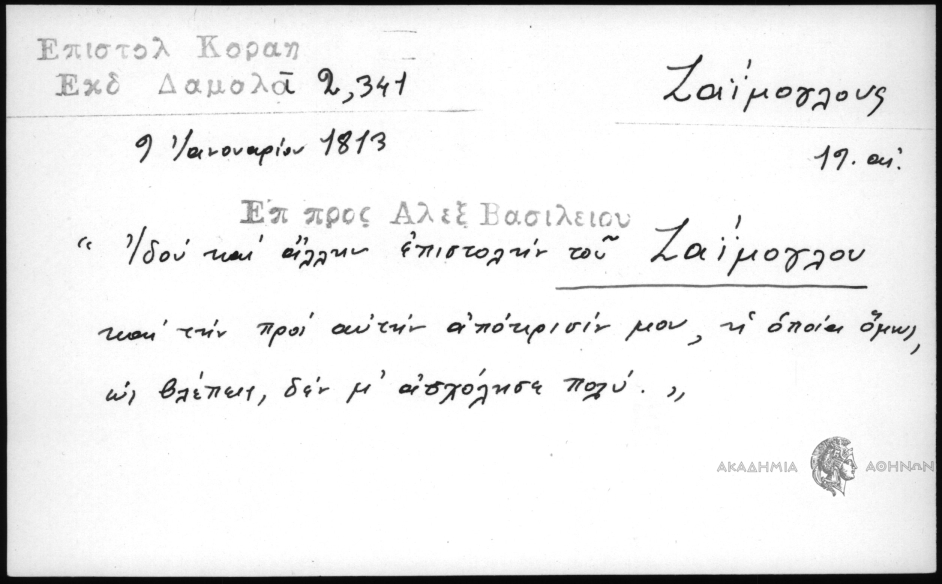 Επιστολ Κοραη
Εκδ Δαμαλᾶ 2,341
Ζαΐμογλους
9 Ἰανουαρίου 1813
19. αἰ.
Επ προς Αλεξ Βασιλειου
“ Ἰδού καί ἄλλην ἐπιστολήν τοῦ Ζαΐμογλου
καί τήν πρός αὐτήν ἀπόκρισίν μου, ἡ ὁποία ὅμως,
ὡς βλέπεις, δέν μ' ἀσχόλησε πολύ. „
ΑΚΑΔΗΜΙΑ ΑΘΗΝΩΝ